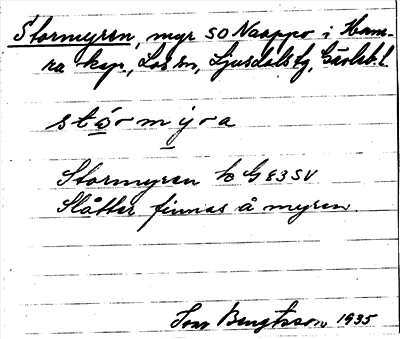 Stormyren, myr SO Naappo i Ham-
ra kap., Los sn, Ljusdals tg, Gävleb. l.
stō̱r-m y̱r-a
Stormyren k G 83 SV
Slåtter finnas å myren.
Tom Bengtsson 1935